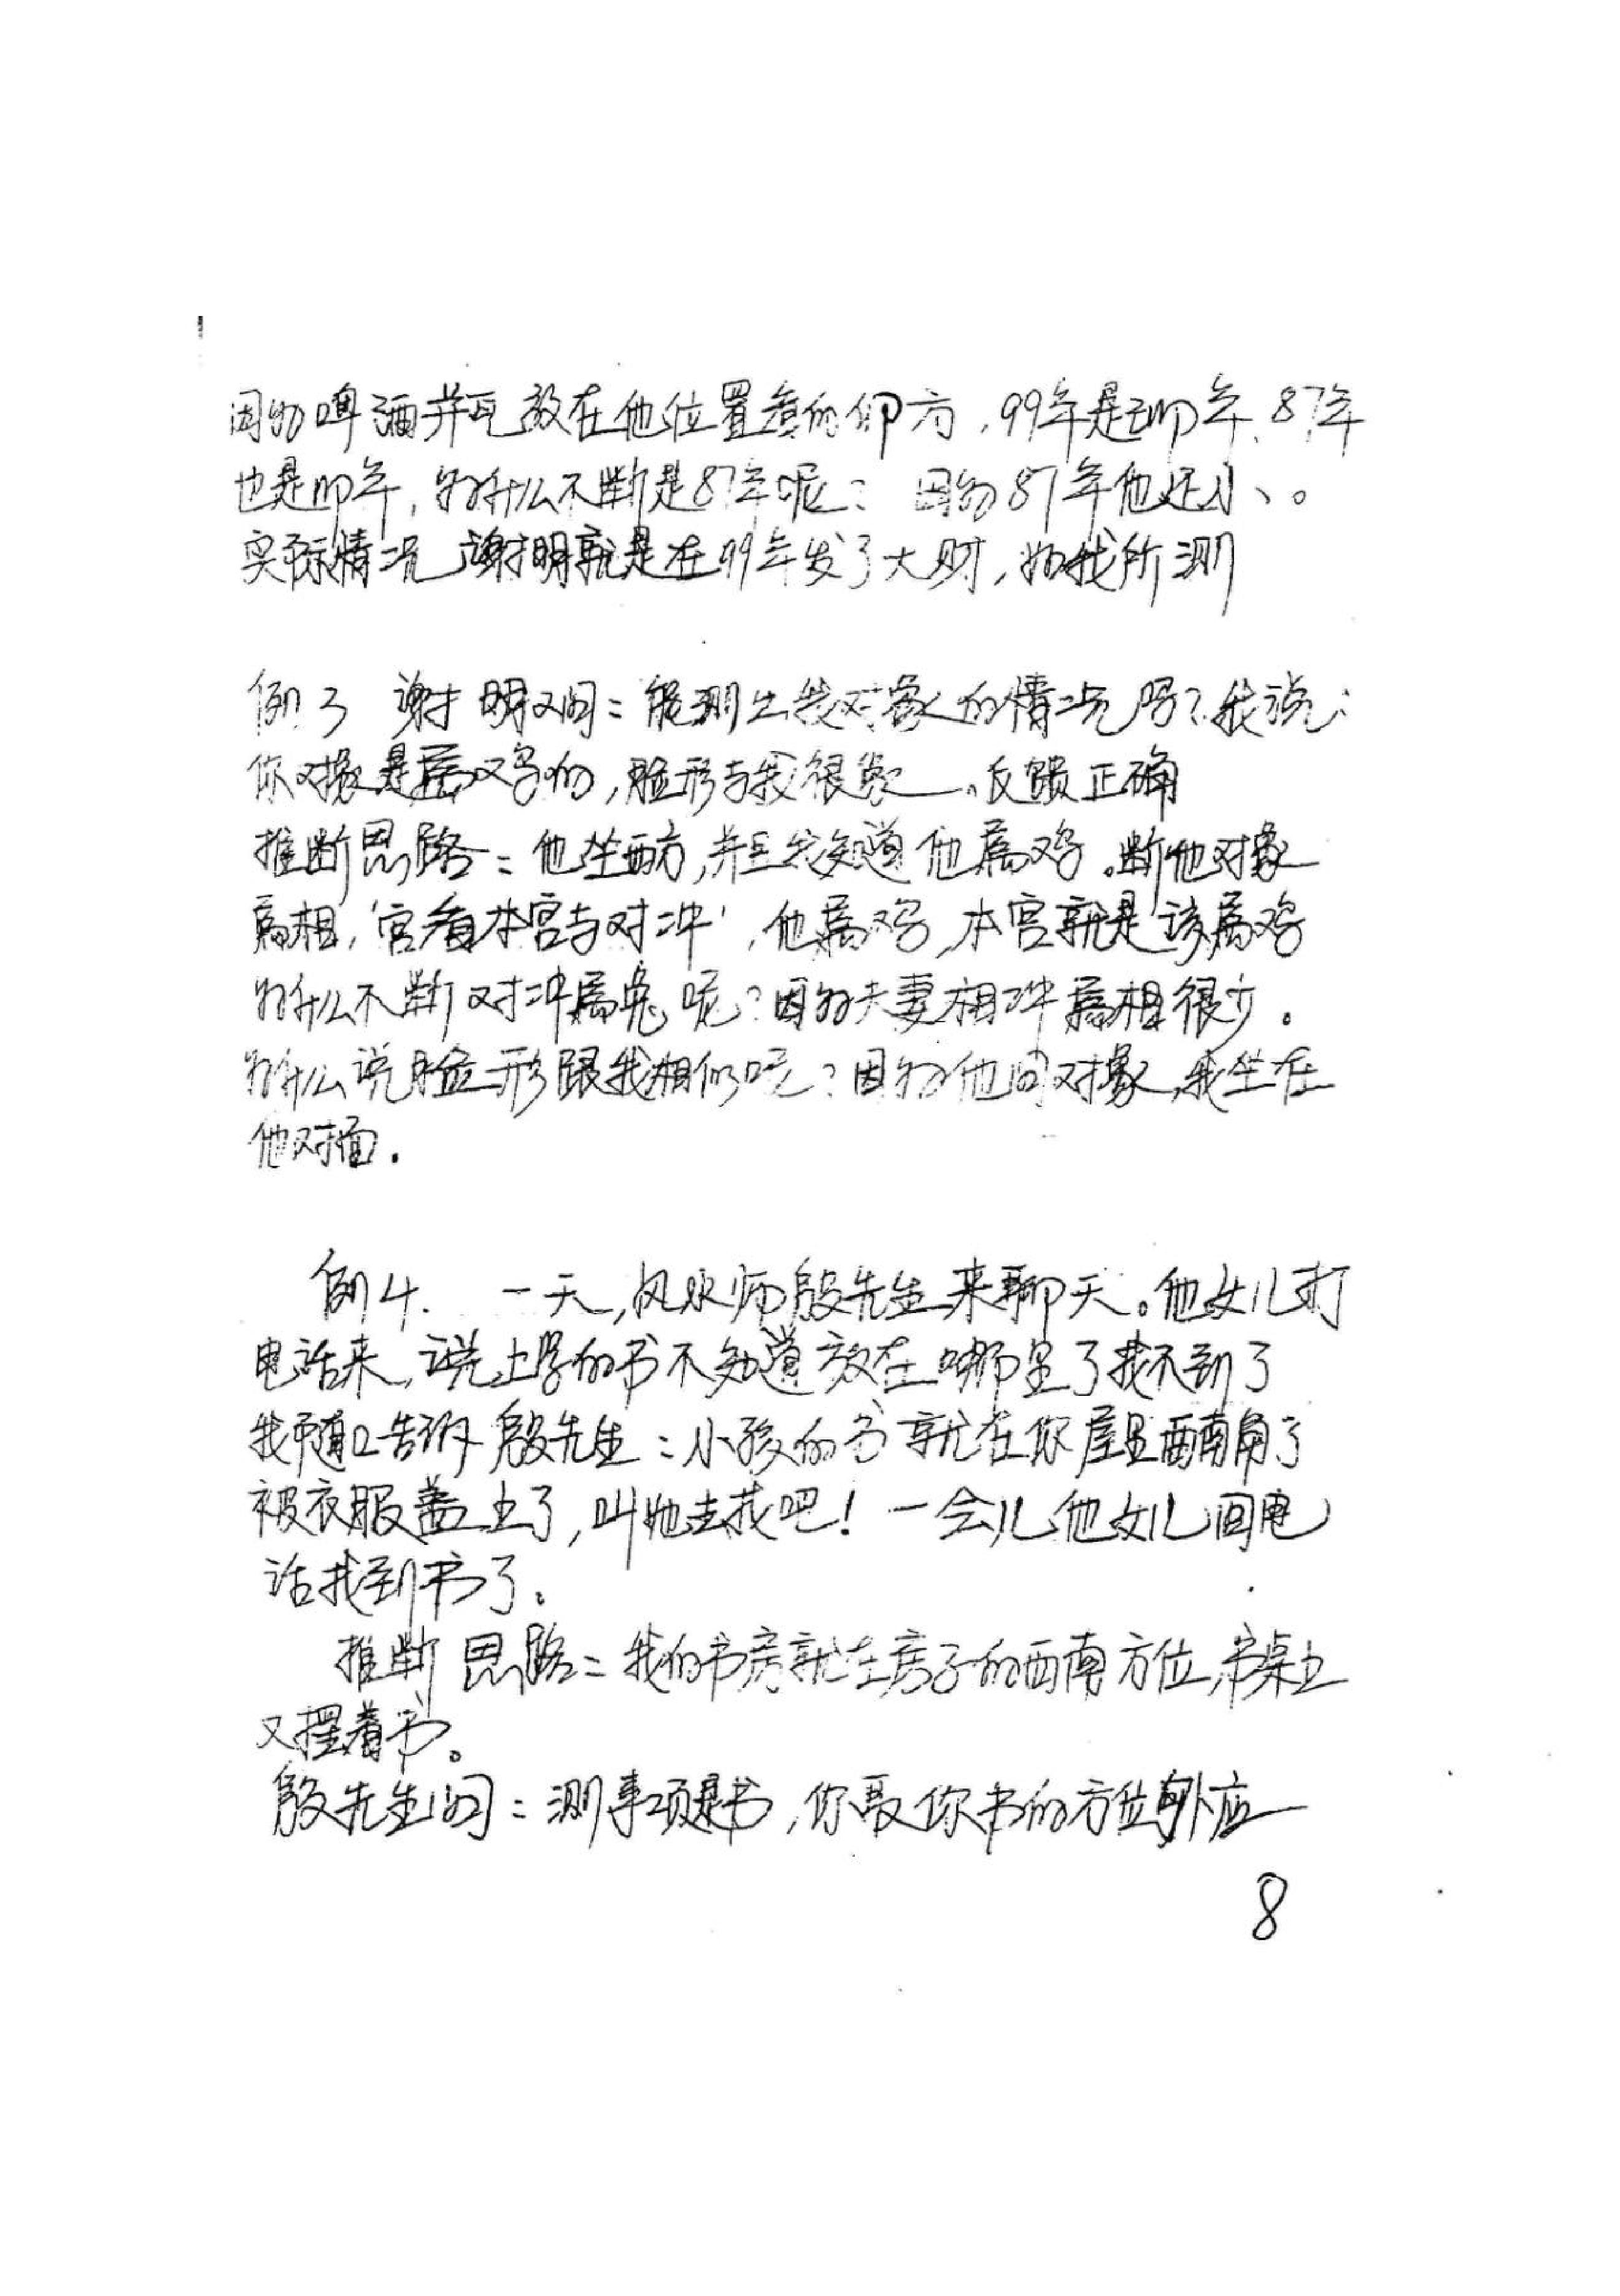 因为啤酒并且放在他位置的卯方，99年是卯年、87年
也是卯年，为什么不断是87年呢？因为87年他还小、。
实际情况谢明就是在99年发了大财，如我所测
例3 谢明又问：能测出我对象的情况吗？我说：
你对象是属鸡的，脸形与我很象。反馈正确
推断思路：他坐西方，并且我知道他属鸡。断他对象
属相，'宫看本宫与对冲'，他属鸡，本宫就是该属鸡
为什么不断对冲属兔呢？因为夫妻相冲属相很少。
为什么说脸形跟我相似呢？因为他问对象，我坐在
他对面．
例4． 一天，风水师殷先生来聊天。他女儿打
电话来，说上学的书不知道放在哪里了找不到了
我随口告诉殷先生：小孩的书就在你屋里西南角了
被衣服盖上了，叫她去找吧！一会儿他女儿回电
话找到书了。
推断思路：我的书房就在房子的西南方位，书桌上
又摆着书。
殷先生问：测事项是书，你取你书的方位外应
8